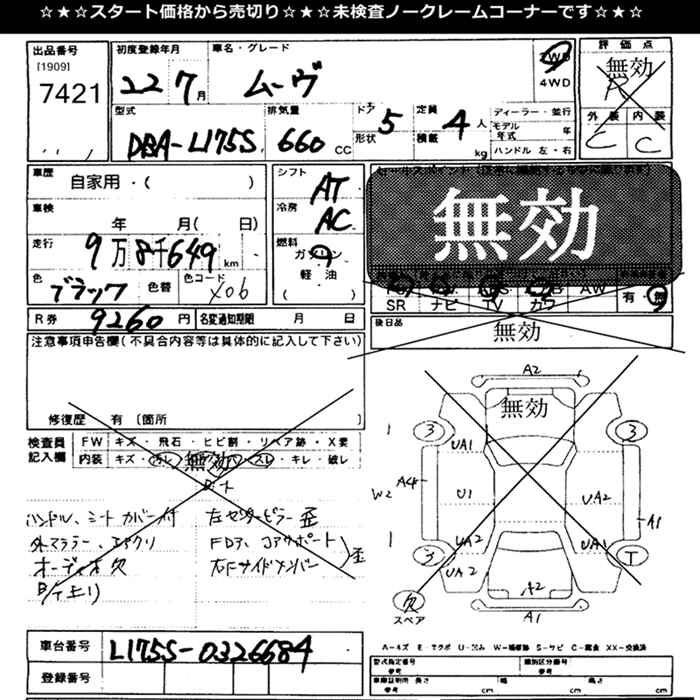 ☆★☆★スタート価格から売切り☆★☆★未検査ノークレームコーナーです☆★☆
出品番号 初度登録年月 車名・グレード 評価点
[1909]
7421 22 7月 ムーヴ 2WD 4WD 無効 R
型式 排気量 ドア 形状 定員 積載 ディーラー・並行 外装 内装
DBA-L175S 660 CC 5 4人 kg モデル年式 年 C C
ハンドル 左・右
車歴 自家用・( ) シフト AT
車検 年 月( 日) 冷房 AC 無効
走行 9万8千649km 燃料 ガソリン
色 ブラック 色替 色コード X06 軽油 ( )
SR ナビ TV カワ AW 有・無
R券 9260円 名変通知期限 月 日 後日品 無効
注意事項申告欄(不具合内容等は具体的に記入して下さい)
修復歴 有 〔箇所
検査員記入欄 FW キズ・飛石・ヒビ割・リペア跡・X要
内装 キズ・汚レ・無効・スレ・キレ・破レ
ハンドル、シートカバー付 左センターピラー歪
外マフラー、エアクリ FDア、コアサポート 歪
オーディオ欠 右Fサイドメンバー
A2
無効
1 3 UA1 3
W2 A4 U1 UA2 A1
1 3 UA2 UA1 T
UA2
欠 A2
スペア A1
A-キズ E-エクボ U-凹み W-補修跡 S-サビ C-腐食 XX-交換済
車台番号 L175S-0326684
登録番号
型式指定番号 参考 類別区分番号 参考
車庫証明用 長さ 参考 cm 幅 cm 高さ cm